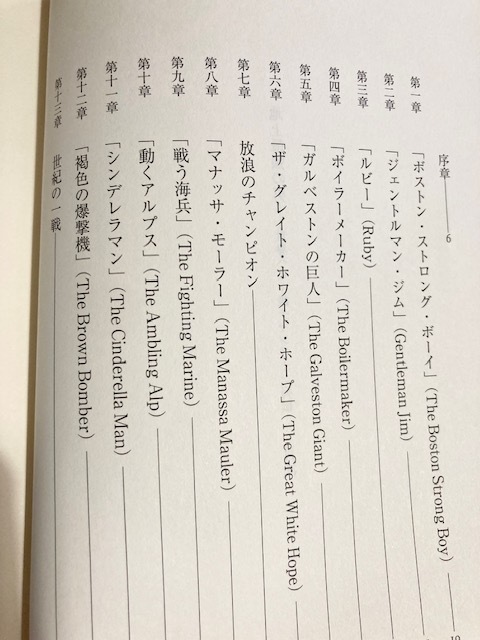 序章――6
第一章 「ボストン・ストロング・ボーイ」(The Boston Strong Boy)――
第二章 「ジェントルマン・ジム」(Gentleman Jim)――
第三章 「ルビー」(Ruby)――
第四章 「ボイラーメーカー」(The Boilermaker)――
第五章 「ガルベストンの巨人」(The Galveston Giant)――
第六章 「ザ・グレイト・ホワイト・ホープ」(The Great White Hope)――
第七章 放浪のチャンピオン――
第八章 「マナッサ・モーラー」(The Manassa Mauler)――
第九章 「戦う海兵」(The Fighting Marine)――
第十章 「動くアルプス」(The Ambling Alp)――
第十一章 「シンデレラマン」(The Cinderella Man)――
第十二章 「褐色の爆撃機」(The Brown Bomber)――
第十三章 世紀の一戦――